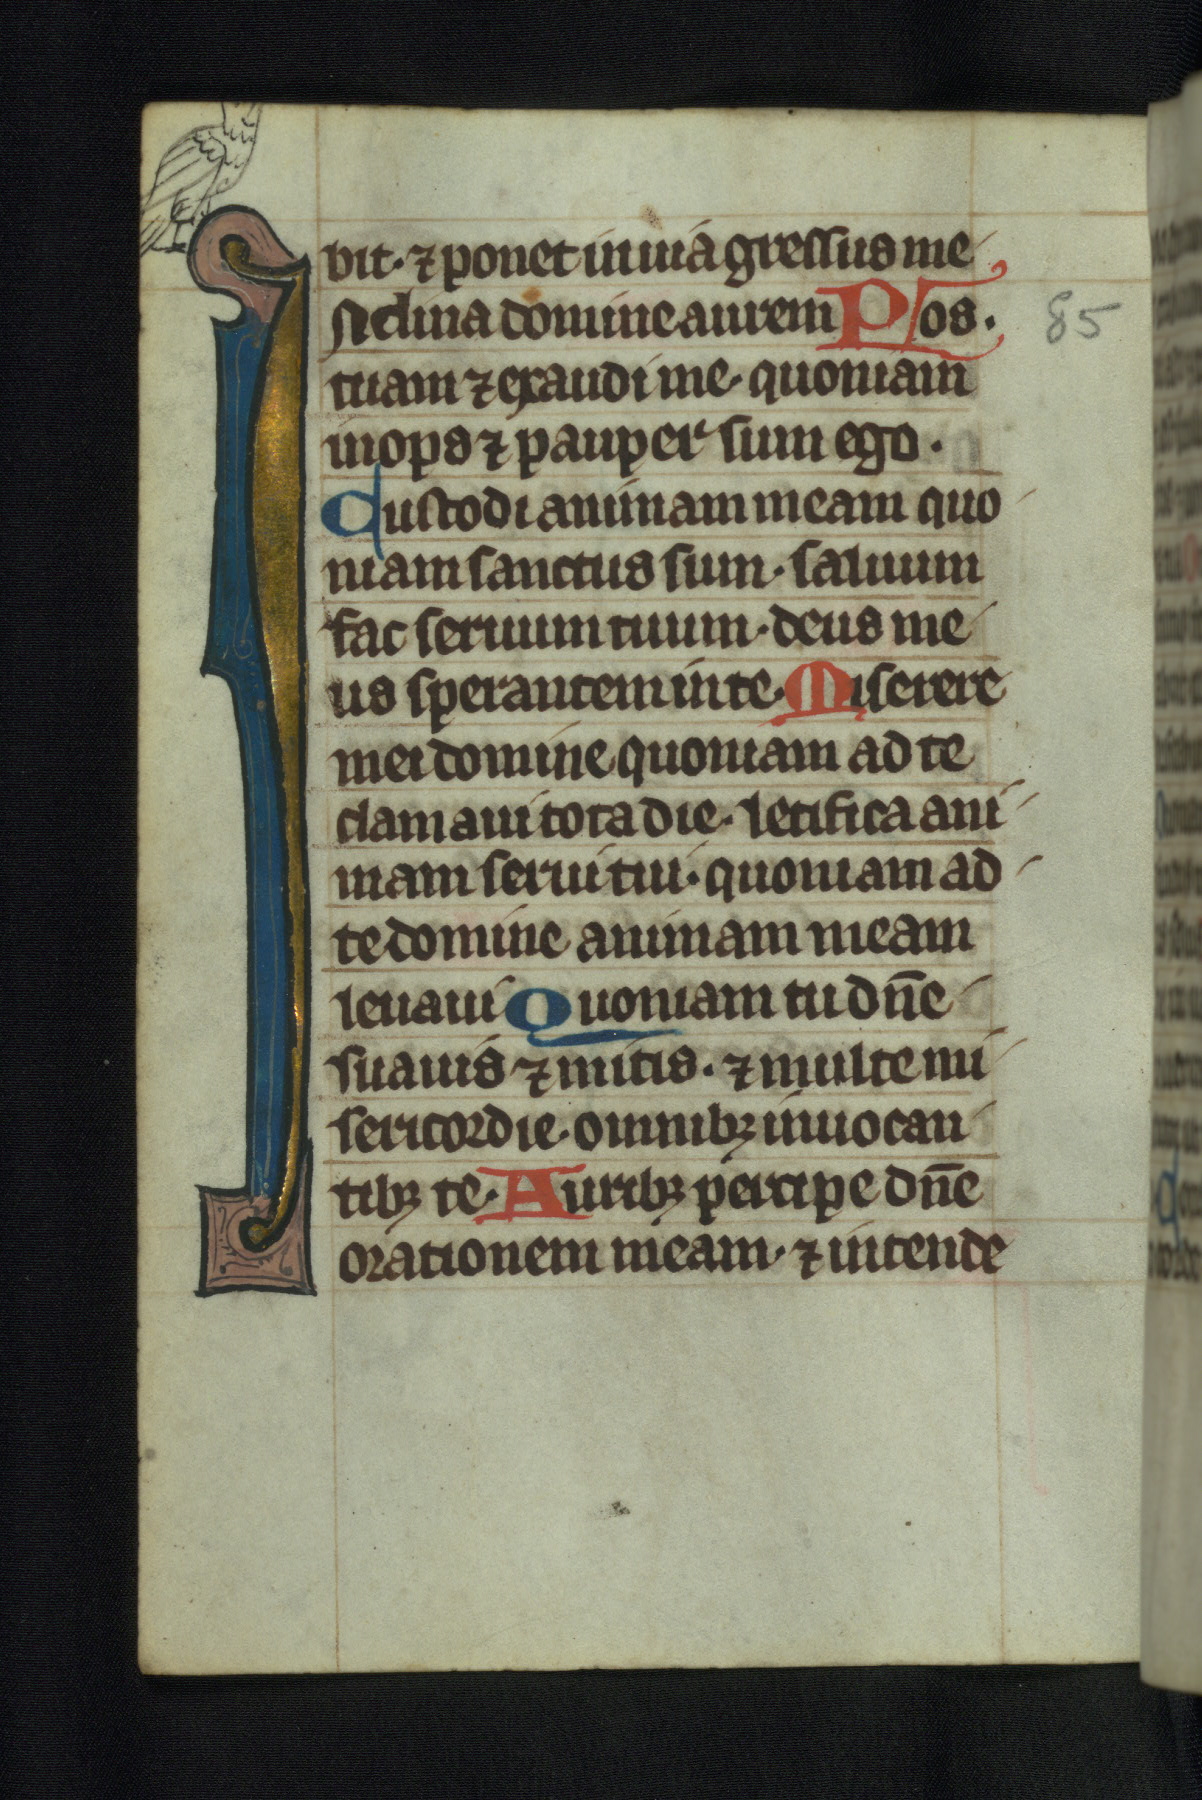 bit· ⁊ ponet in uia gressus me
Nclina domine aurem P/os·
tuam ⁊ exaudi me· quoniam
inops ⁊ pauper sum ego·
Custodi animam meam quo
niam sanctus sum· saluum
fac seruum tuum· deus me
us sperantem in te· Miserere
mei domine quoniam ad te
clamaui tota die· letifica ani
mam serui tui· quoniam ad
te domine animam meam
leuaui Quoniam tu dn̄e
suauis ⁊ mitis· ⁊ multe mi
sericordie· omnibꝫ inuocan
tibꝫ te· Auribꝫ percipe dn̄e
orationem meam· ⁊ intende
85